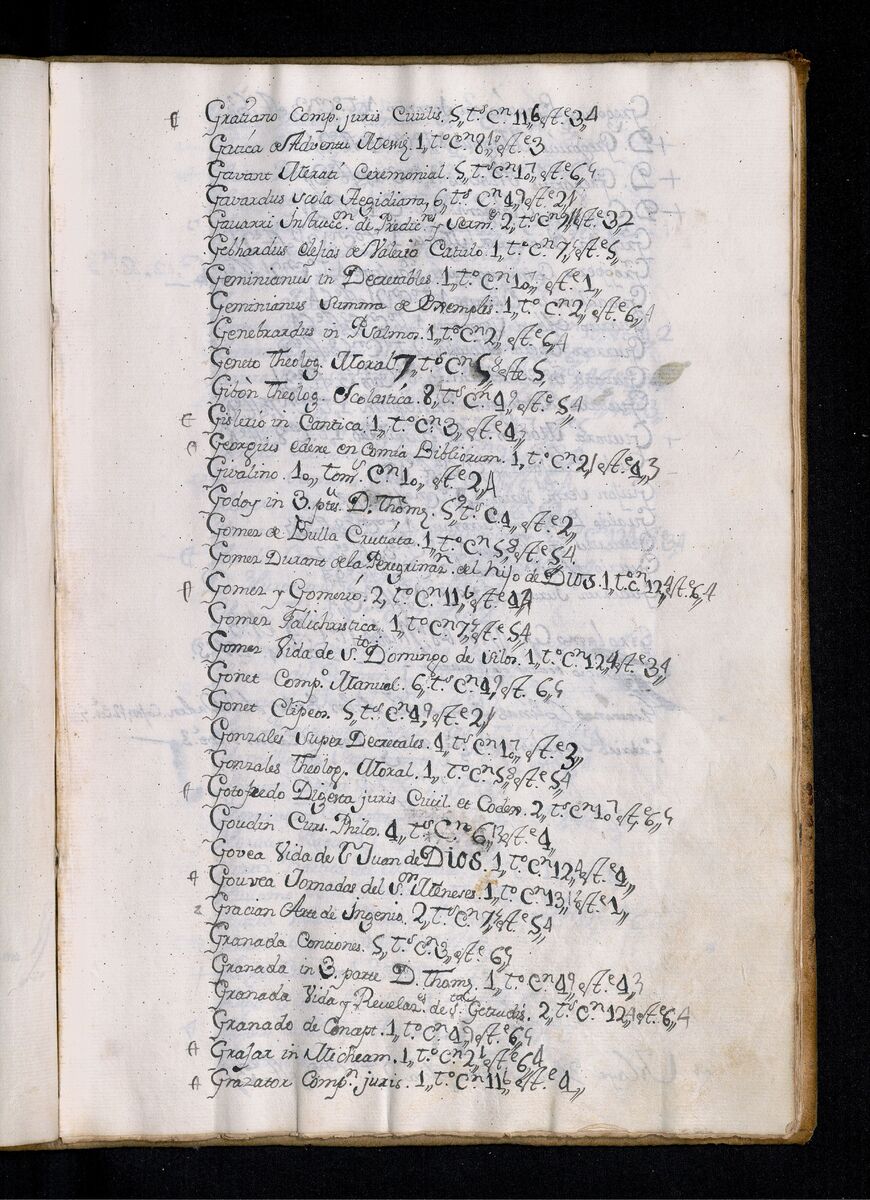 Gratiano Comp.º juris Civilis. 5,, t.s C.n 11,, 6 est.e 3,, 4
Gatica de Adventu Messię. 1,, t.º C.n 8,, est.e 3
Gavant Merati Ceremonial. 5,, t.s C.n 10,, 7 est.e 6,, 5
Gavardus Scola Aegidiana, 6,, t.s C.n 4,, 9 est.e 2,,
Gavarri Instrucc.on de Predic.res y Serm.s 2,, t.s C.n est.e 3
Gebhardus elegias de Valerio Catulo. 1,, t.º C.n 7,, 5 est.e 5,,
Geminianus in Decretales. 1,, t.º C.n 10,, 7 est.e 1,,
Geminianus Summa de Exemplis. 1,, t.º C.n 2,, 1 est.e 6,, 4
Genebrardus in Psalmos. 1,, t.º C.n 2,, 1 est.e 6,, 4
Geneto Theolog. Moral 7,, t.s C.n 5,, 8 est.e 5,,
Gibòn Theolog. Scolastica. 8,, t.s C.n 4,, 9 est.e 5,, 4
Gislerio in Cantica. 1,, t.º C.n 3,, est.e 4,, 3
Georgius edere en comia Bibliorum. 1,, t.º C.n 2,, 1 est.e 4,, 3
Givalino. 10,, tom.s C.n 10,, est.e 2,, 4
Godoy in 3. ptẽ. D. Thomę. 5,, t.s C. 4,, 9 est.e 2,,
Gomez de Bulla Cruciata. 1,, t.º C.n 5,, 8 est.e 5,, 4
Gomez Durant de la Peregrinaz.n del hijo de Dios. 1,, t.º C.n 12,, 4 est.e 6,, 4
Gomez y Gomerió. 2,, t.º C.n 11,, 6 est.e 4,,
Gomez Talichristica. 1,, t.º C.n 7,, 5 est.e 5,, 4
Gomez Vida de S.to Domingo de Silos. 1,, t.º C.n 12,, 4 est.e 3,, 4
Gonet Comp.º Manual. 6,, t.s C.n 4,, 9 est.e 6,, 5
Gonet Clipeos. 5,, t.s C.n 4,, 9 est.e 2,,
Gonzales super Decretales. 4,, t.s C.n 10,, 7 est.e 3,,
Gonzales Theolog. Moral. 1,, t.º C.n 5,, 8 est.e 5,, 4
Gotofredo Digesta juris Civil. et Codex. 2,, t.s C.n 10,, 7 est.e 6,, 5
Goudin Curs. Philos. 4,, t.s C.n 6,, 13 est.e 4,,
Govea Vida de S. Juan de Dios 1,, t.º C.n 12,, 4 est.e 4,,
Gouvea Jornadas del S.r Meneses. 1,, t.º C.n 13,, 12 est.e 1,,
Gracian Arte de Ingenio. 2,, t.s C.n 7,, 5 est.e 5,, 4
Granada Conciones. 5,, t.s C.n 3,, est.e 6,, 5
Granada in 3. parte D. Thomę. 1,, t.º C.n 4,, 9 est.e 4,, 3
Granada Vida y Revelac.es de S.ta Getrudis. 2,, t.s C.n 12,, 4 est.e 6,, 4
Granado de Concept. 1,, t.º C.n 4,, 9 est.e 6,, 5
Grasar in Micheam. 1,, t.º C.n 2,, 1 est.e 6,, 4
Grazator Comp.m juris. 1,, t.º C.n 11,, 6 est.e 4,,